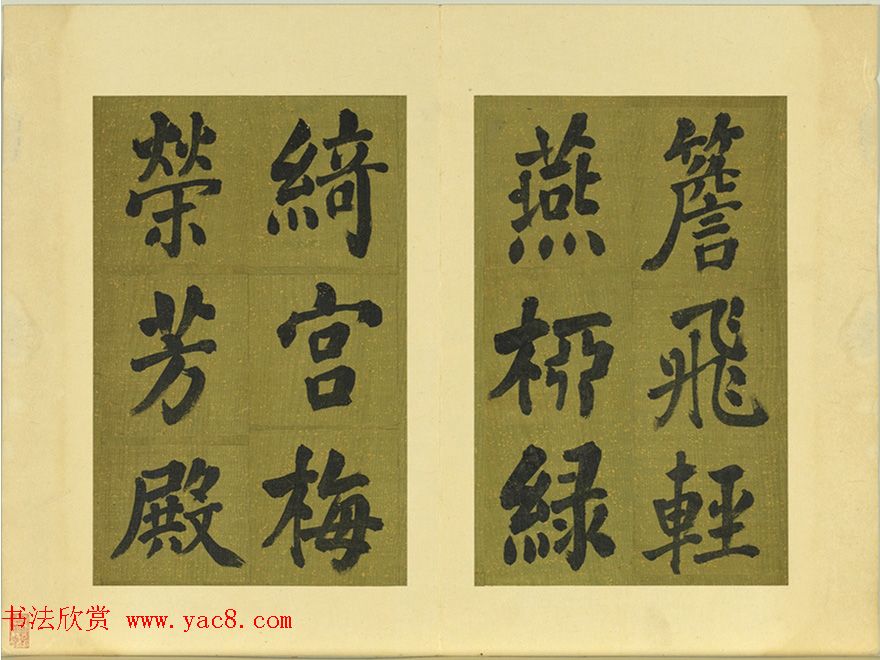 簷飛輕
燕柳緑
綺宮梅
榮芳殿
书法欣赏 www.yac8.com